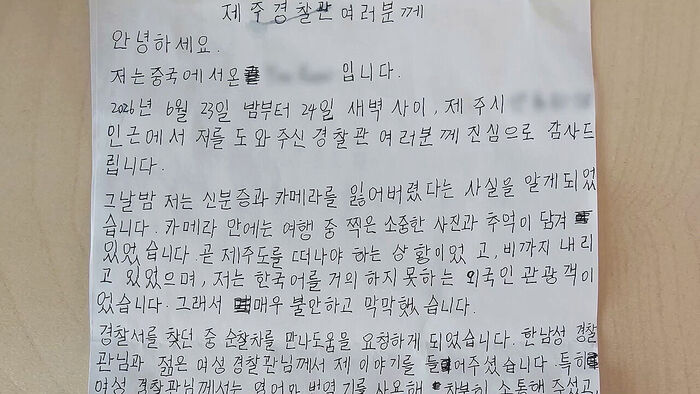 제주경찰관여러분께
안녕하세요.
저는중국에서온 입니다.
2026년 6월 23일 밤부터 24일 새벽 사이, 제주시
인근에서 저를 도와주신 경찰관 여러분께 진심으로 감사드
립니다.
그날밤 저는 신분증과 카메라를 잃어버렸다는 사실을 알게되었
습니다. 카메라 안에는 여행 중 찍은 소중한 사진과 추억이 담겨
있었습니다 곧 제주도를 떠나야 하는 상황이었고, 비까지 내리
고 있었으며, 저는 한국어를 거의 하지 못하는 외국인 관광객이
었습니다. 그래서 매우 불안하고 막막했습니다.
경찰서를 찾던 중 순찰차를 만나도움을 요청하게 되었습니다. 한남성 경찰
관님과 젊은 여성 경찰관님께서 제 이야기를 들어주셨습니다. 특히
여성 경찰관님께서는 영어와 번역기를 사용해 차분히 소통해 주셨고,